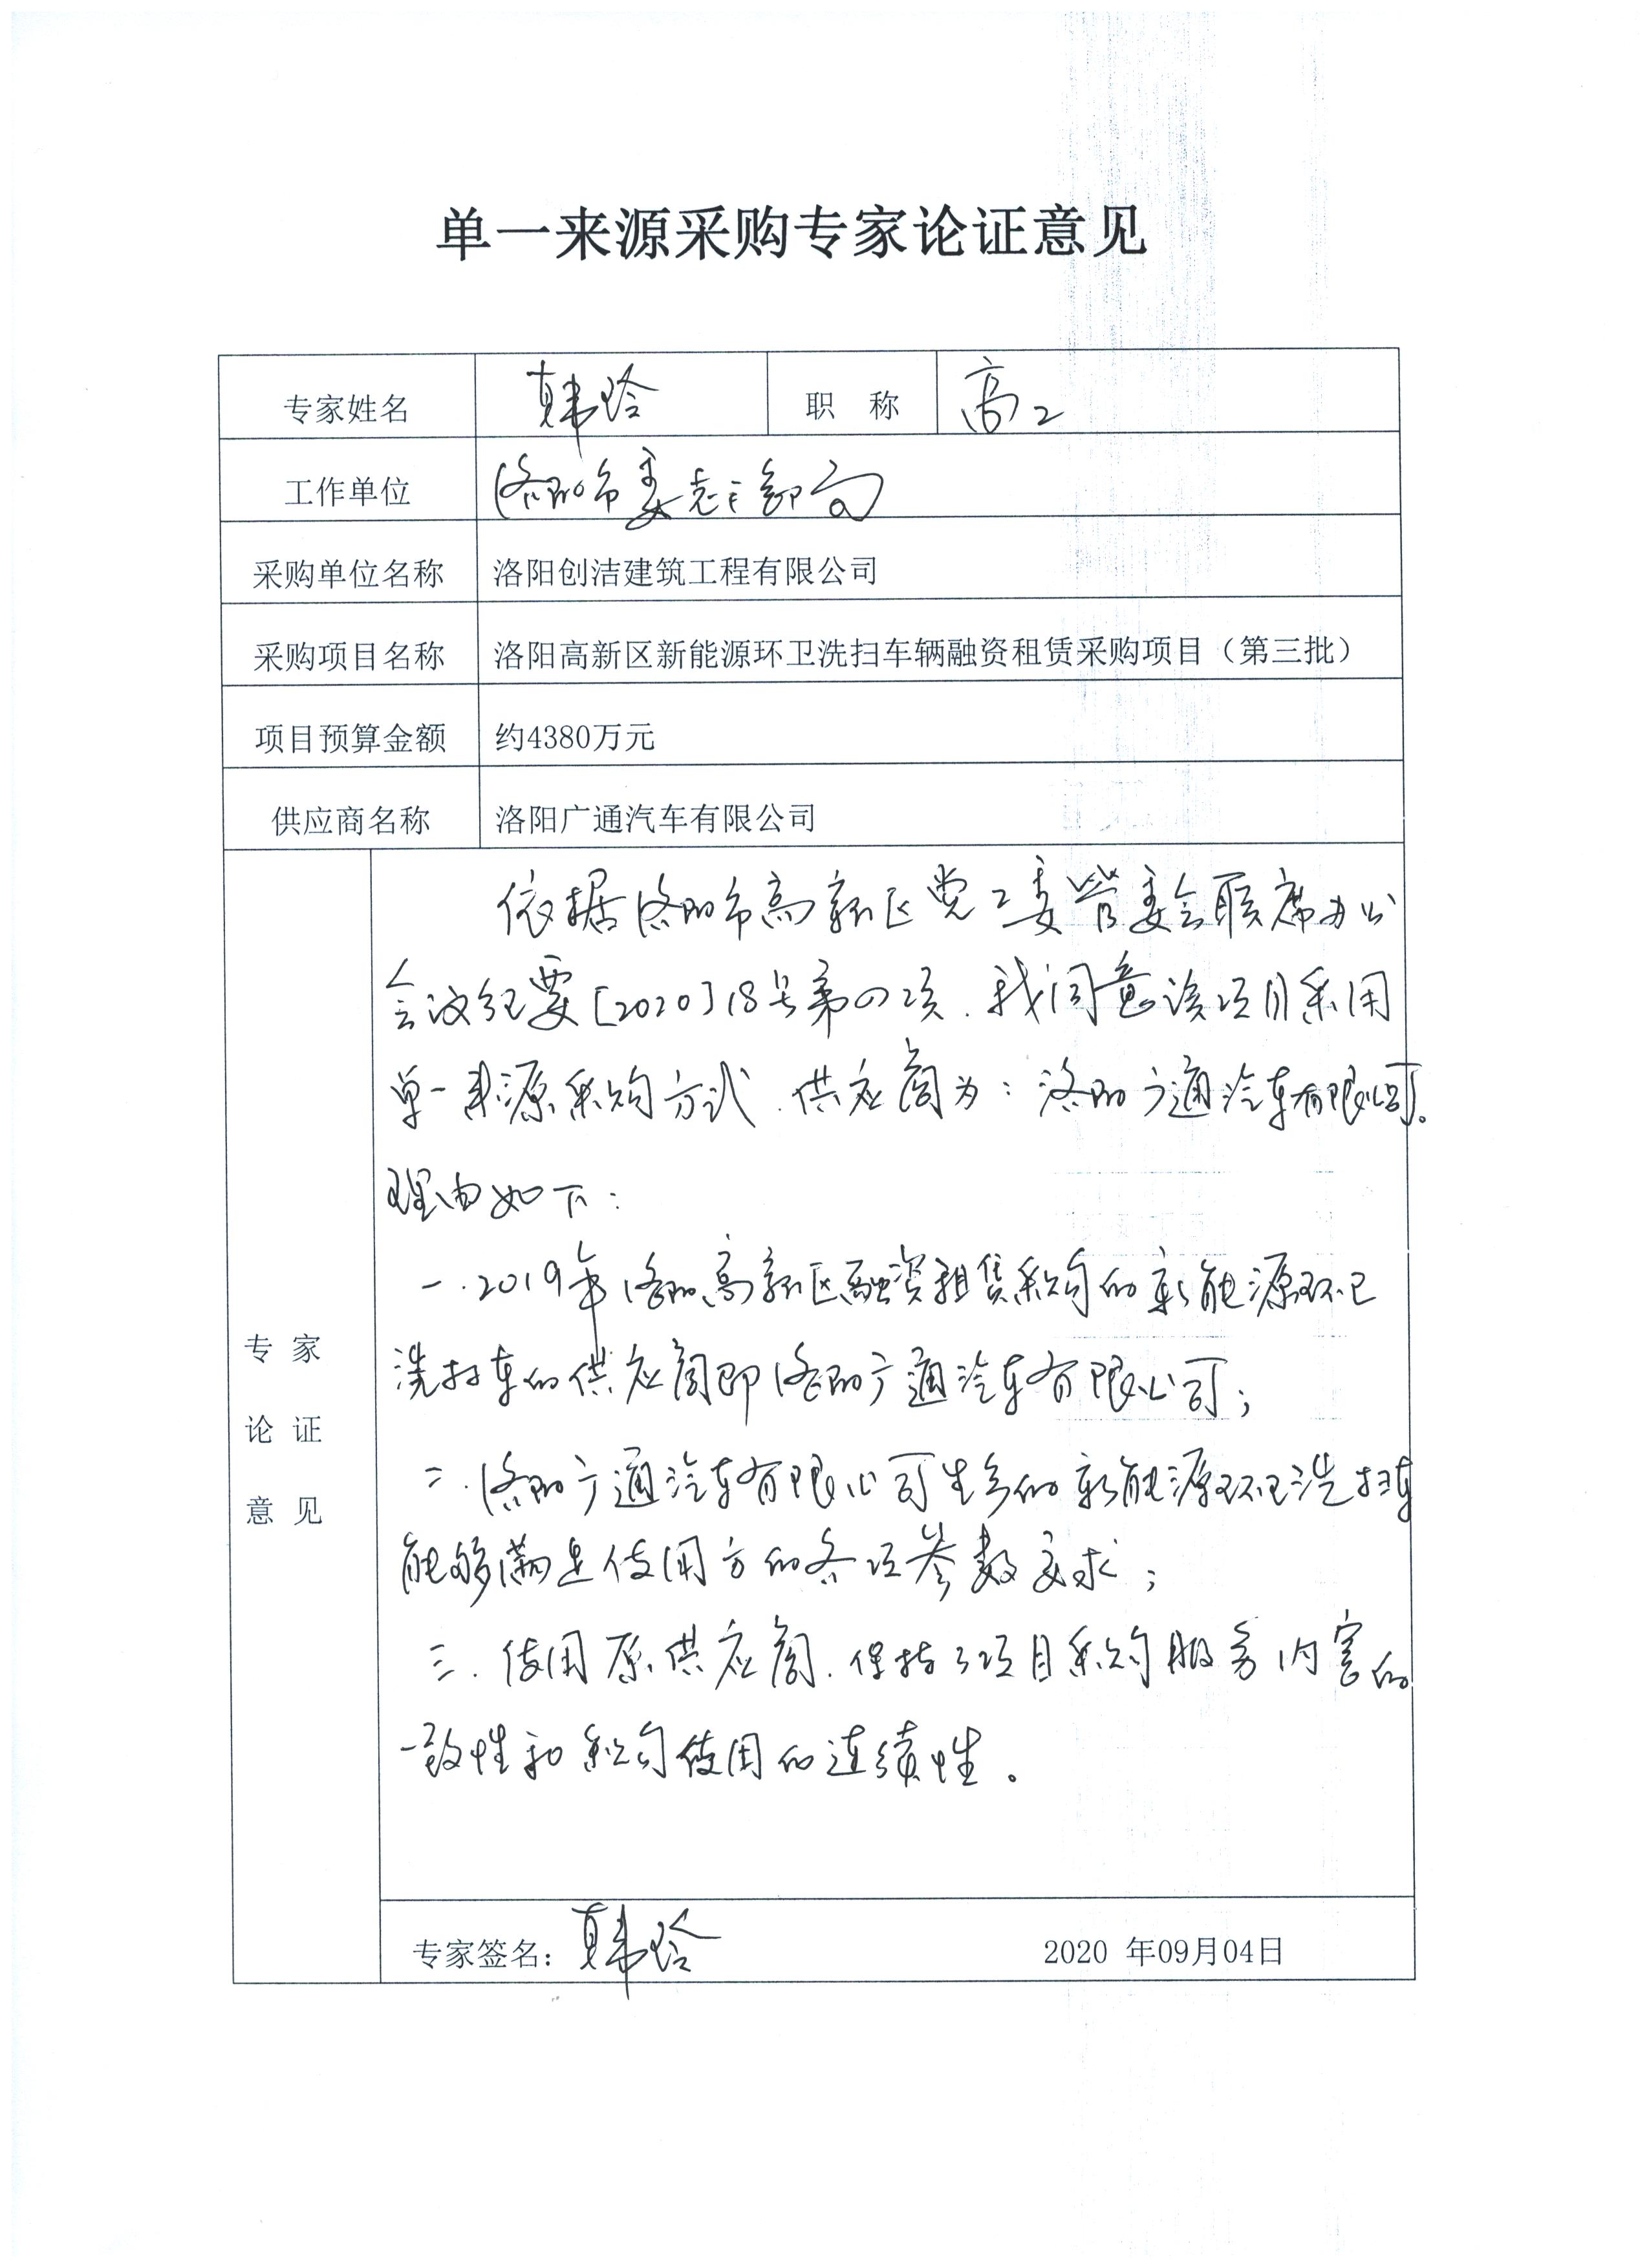 单一来源采购专家论证意见
专家姓名 韩玲 职 称 高工
工作单位 洛阳市委老干部局
采购单位名称 洛阳创洁建筑工程有限公司
采购项目名称 洛阳高新区新能源环卫洗扫车辆融资租赁采购项目（第三批）
项目预算金额 约4380万元
供应商名称 洛阳广通汽车有限公司
依据洛阳市高新区党工委管委会联席办公
会议纪要[2020]18号第四项，我同意该项目采用
单一来源采购方式，供应商为：洛阳广通汽车有限公司。
理由如下：
一.2019年洛阳高新区融资租赁采购的新能源环卫
洗扫车的供应商即洛阳广通汽车有限公司；
二.洛阳广通汽车有限公司生产的新能源环卫洗扫车
能够满足使用方的各项参数要求；
三.使用原供应商，保持了项目采购服务内容的
一致性和采购使用的连续性。
专 家
论 证
意 见
专家签名：韩玲 2020 年09月04日